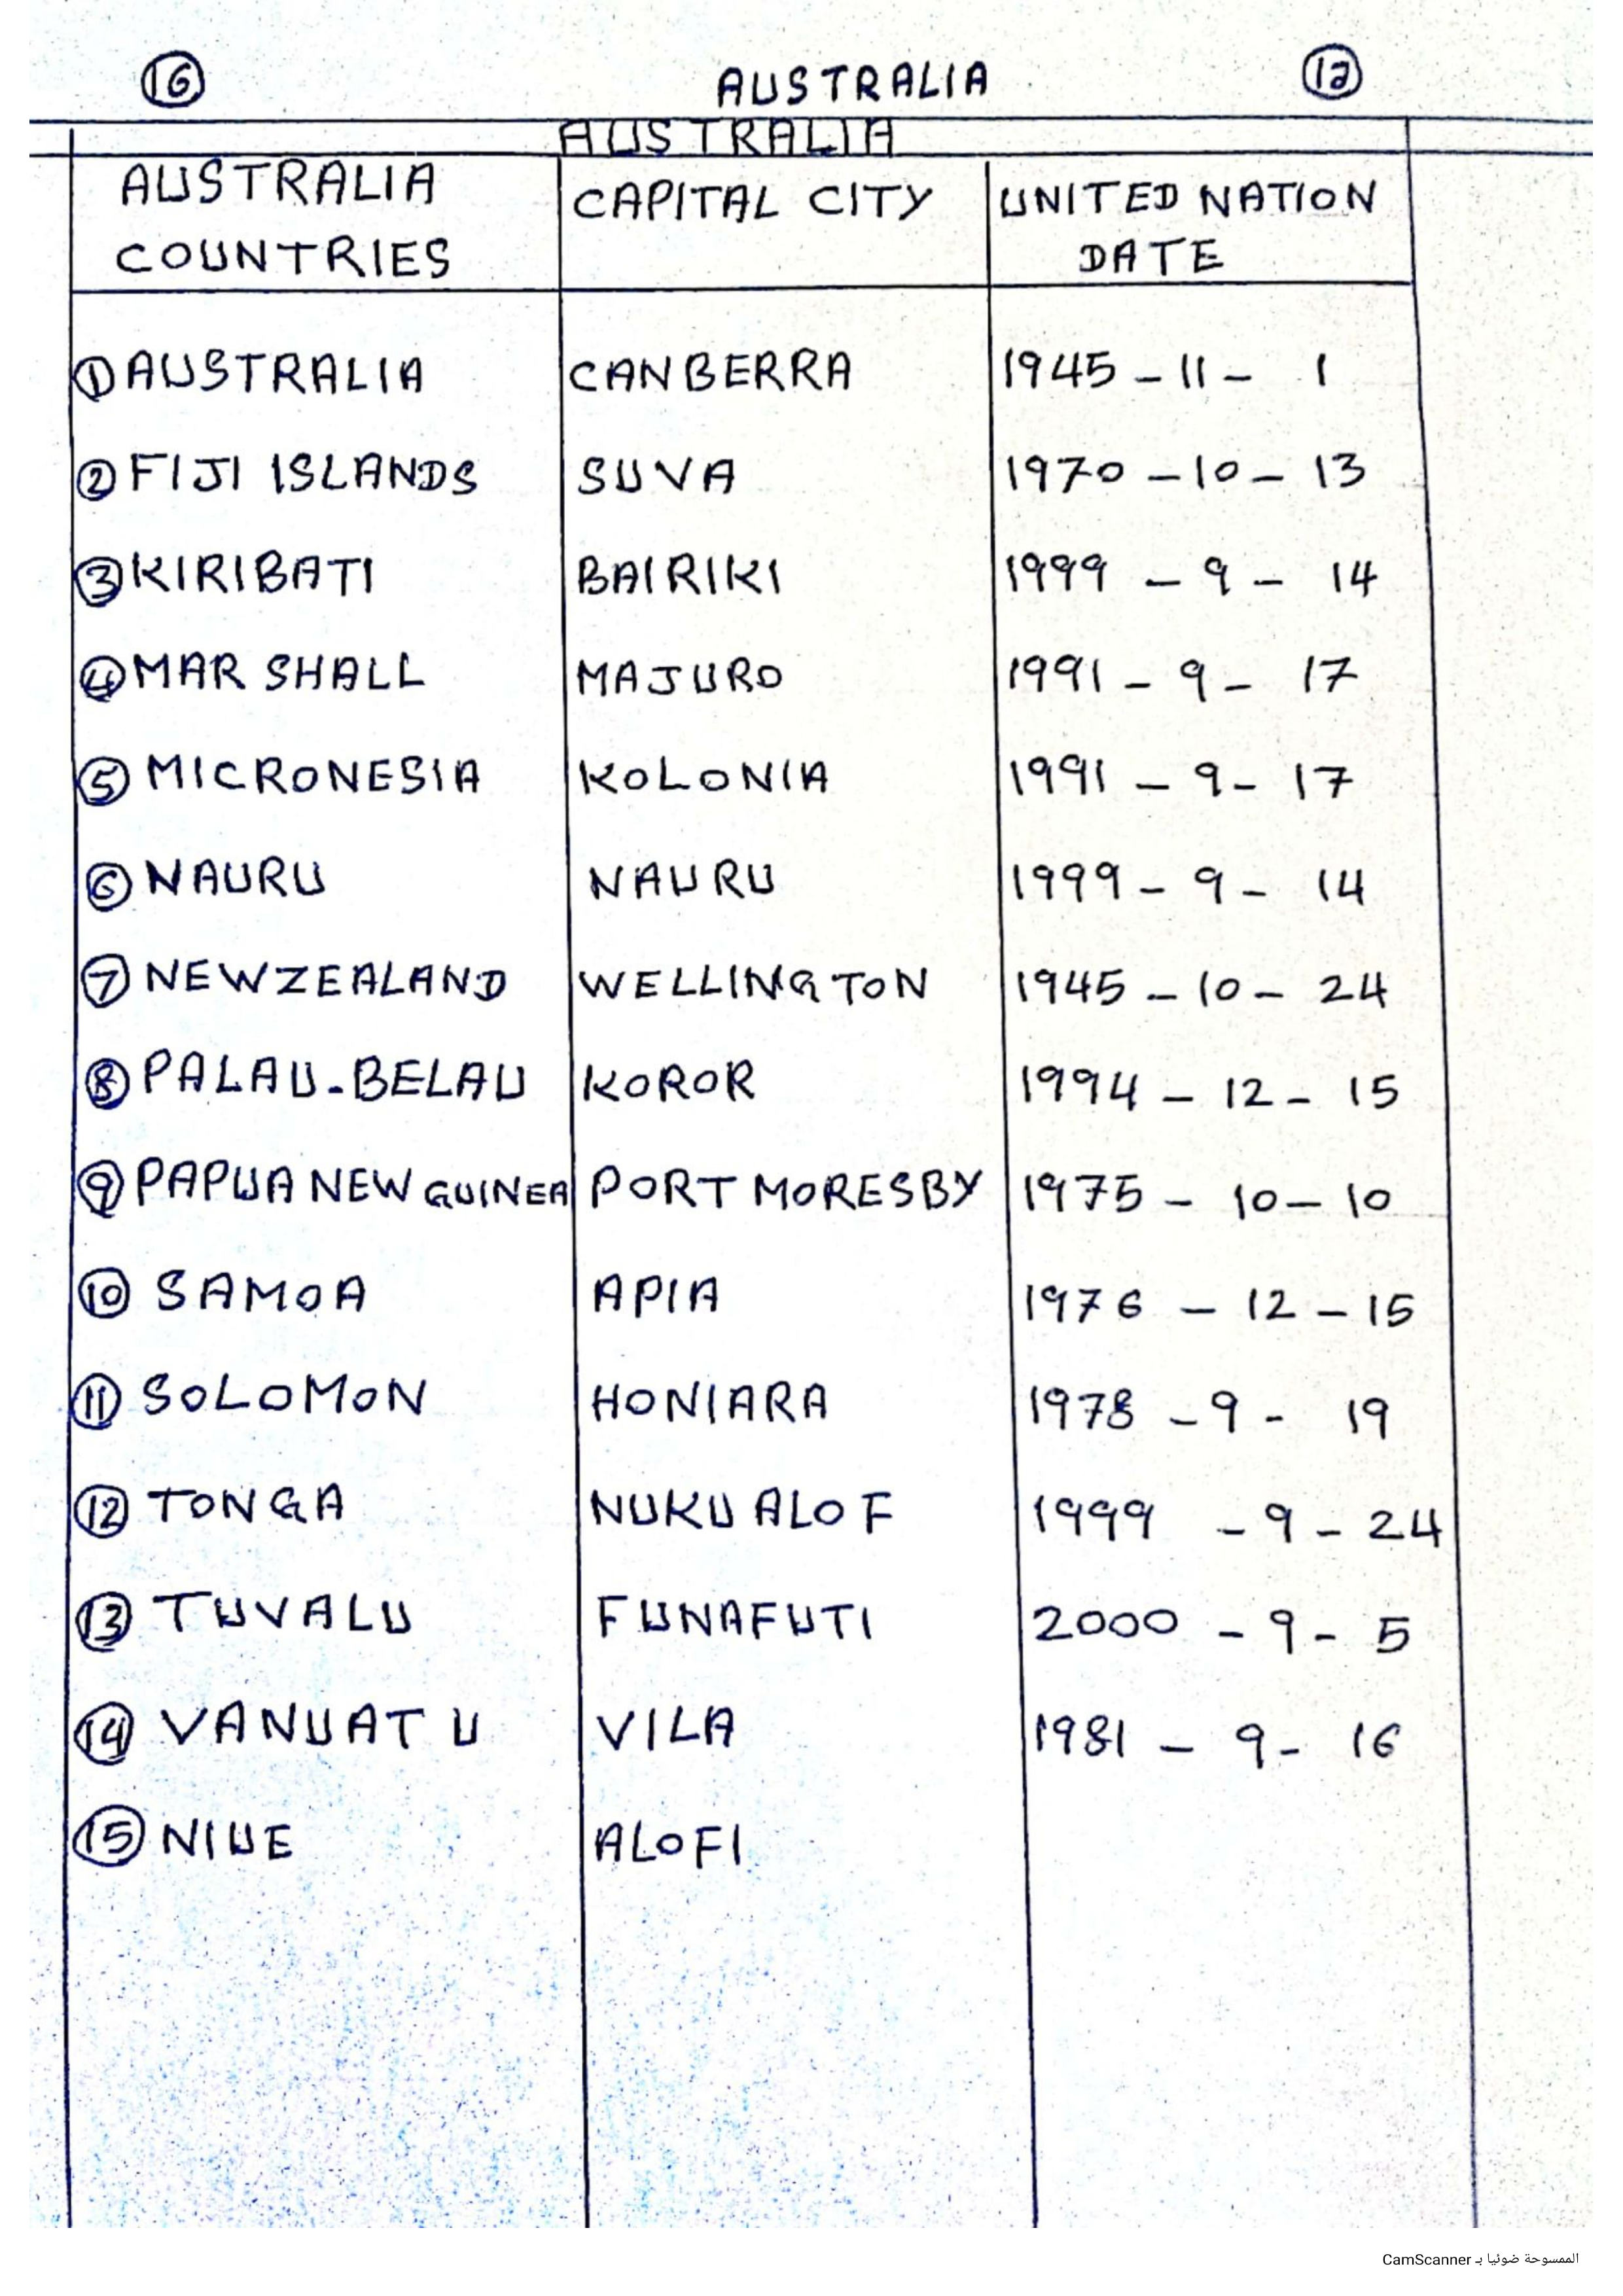 16 AUSTRALIA 12
AUSTRALIA
AUSTRALIA COUNTRIES CAPITAL CITY UNITED NATION DATE
1 AUSTRALIA CANBERRA 1945 - 11 - 1
2 FIJI ISLANDS SUVA 1970 - 10 - 13
3 KIRIBATI BAIRIKI 1999 - 9 - 14
4 MAR SHALL MAJURO 1991 - 9 - 17
5 MICRONESIA KOLONIA 1991 - 9 - 17
6 NAURU NAURU 1999 - 9 - 14
7 NEWZEALAND WELLINGTON 1945 - 10 - 24
8 PALAU-BELAU KOROR 1994 - 12 - 15
9 PAPUA NEW GUINEA PORT MORESBY 1975 - 10 - 10
10 SAMOA APIA 1976 - 12 - 15
11 SOLOMON HONIARA 1978 - 9 - 19
12 TONGA NUKU ALOF 1999 - 9 - 24
13 TUVALU FUNAFUTI 2000 - 9 - 5
14 VANUATU VILA 1981 - 9 - 16
15 NIUE ALOFI
الممسوحة ضوئيا بـ CamScanner